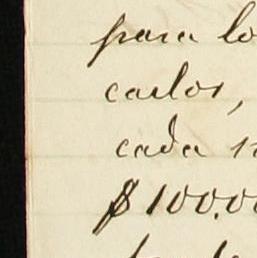 para lo
carlos,
cada
$100.0